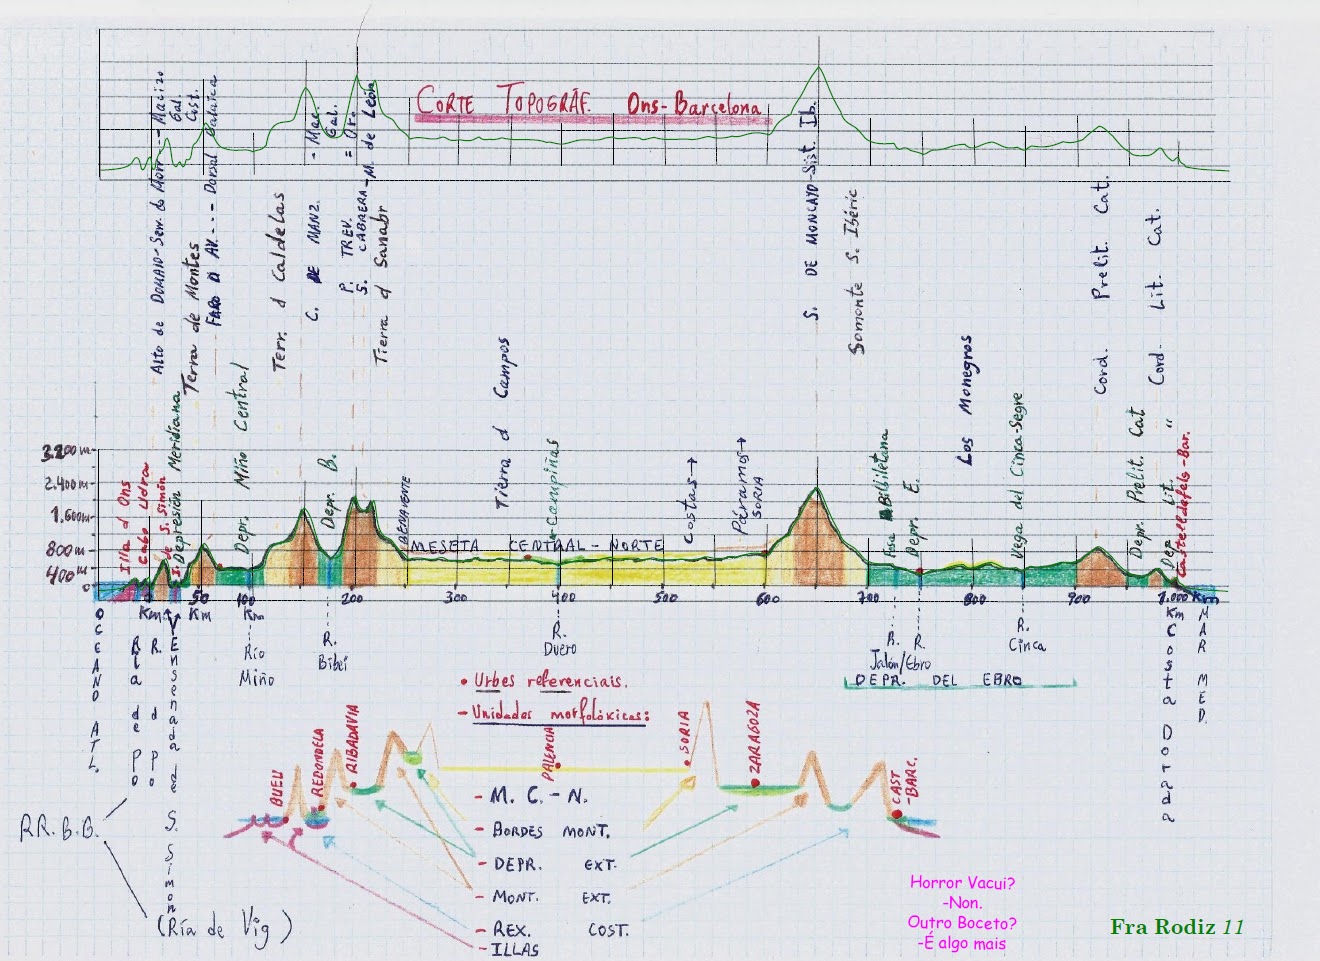 CORTE TOPOGRÁF. Ons-Barcelona
Alto de DOMAIO-Serr. do Morr--Macizo
Gal.
Cost.
Terra de Montes
FARO D AV.---Dorsal Galaica
Terr. d Caldelas
C. DE MANZ. - Mac.
Gal.
P. TREV. = Or.
S. CABRERA-M. de León
Tierra d Sanabr
S. DE MONCAYO-Sist. Ib.
Somonte S. Ibéric
Cord. Prelit. Cat.
Cord. Lit. Cat.
Illa d Ons
Cabo Udra
I. de S. Simón
Depresión Meridiana
Depr. Miño Central
Depr. B.
BENAVENTE
Tierra d Campos
Campiñas
Costas→
Páramos→
SORIA
Fosa Bilbiletana
Depr. E.
Los Monegros
Vega del Cinca-Segre
Depr. Prelit. Cat
Dep. Lit. "
Castelldefels-Bar.
3.200m
2.400m
1.600m
800m
400m
0
MESETA CENTRAL-NORTE
Km 50 Km 100 Km 200 300 400 500 600 700 800 900 1.000 Km
Km
OCEANO ATL.
Ría de Po
R. d Po
Ensenada de S. Simón
Río
Miño
R.
Bibei
R.
Duero
R.
Jalón/Ebro
R.
R.
Cinca
DEPR. DEL EBRO
Costa Dorada
MAR MED.
• Urbes referenciais.
- Unidades morfolóxicas:
BUEU
REDONDELA
RIBADAVIA
PALENCIA
SORIA
ZARAGOZA
CAST
-BARC.
- M. C.-N.
- BORDES MONT.
- DEPR. EXT.
- MONT. EXT.
- REX. COST.
- ILLAS
RR.B.B.
(Ría de Vig)
Horror Vacui?
-Non.
Outro Boceto?
-É algo mais
Fra Rodiz 11